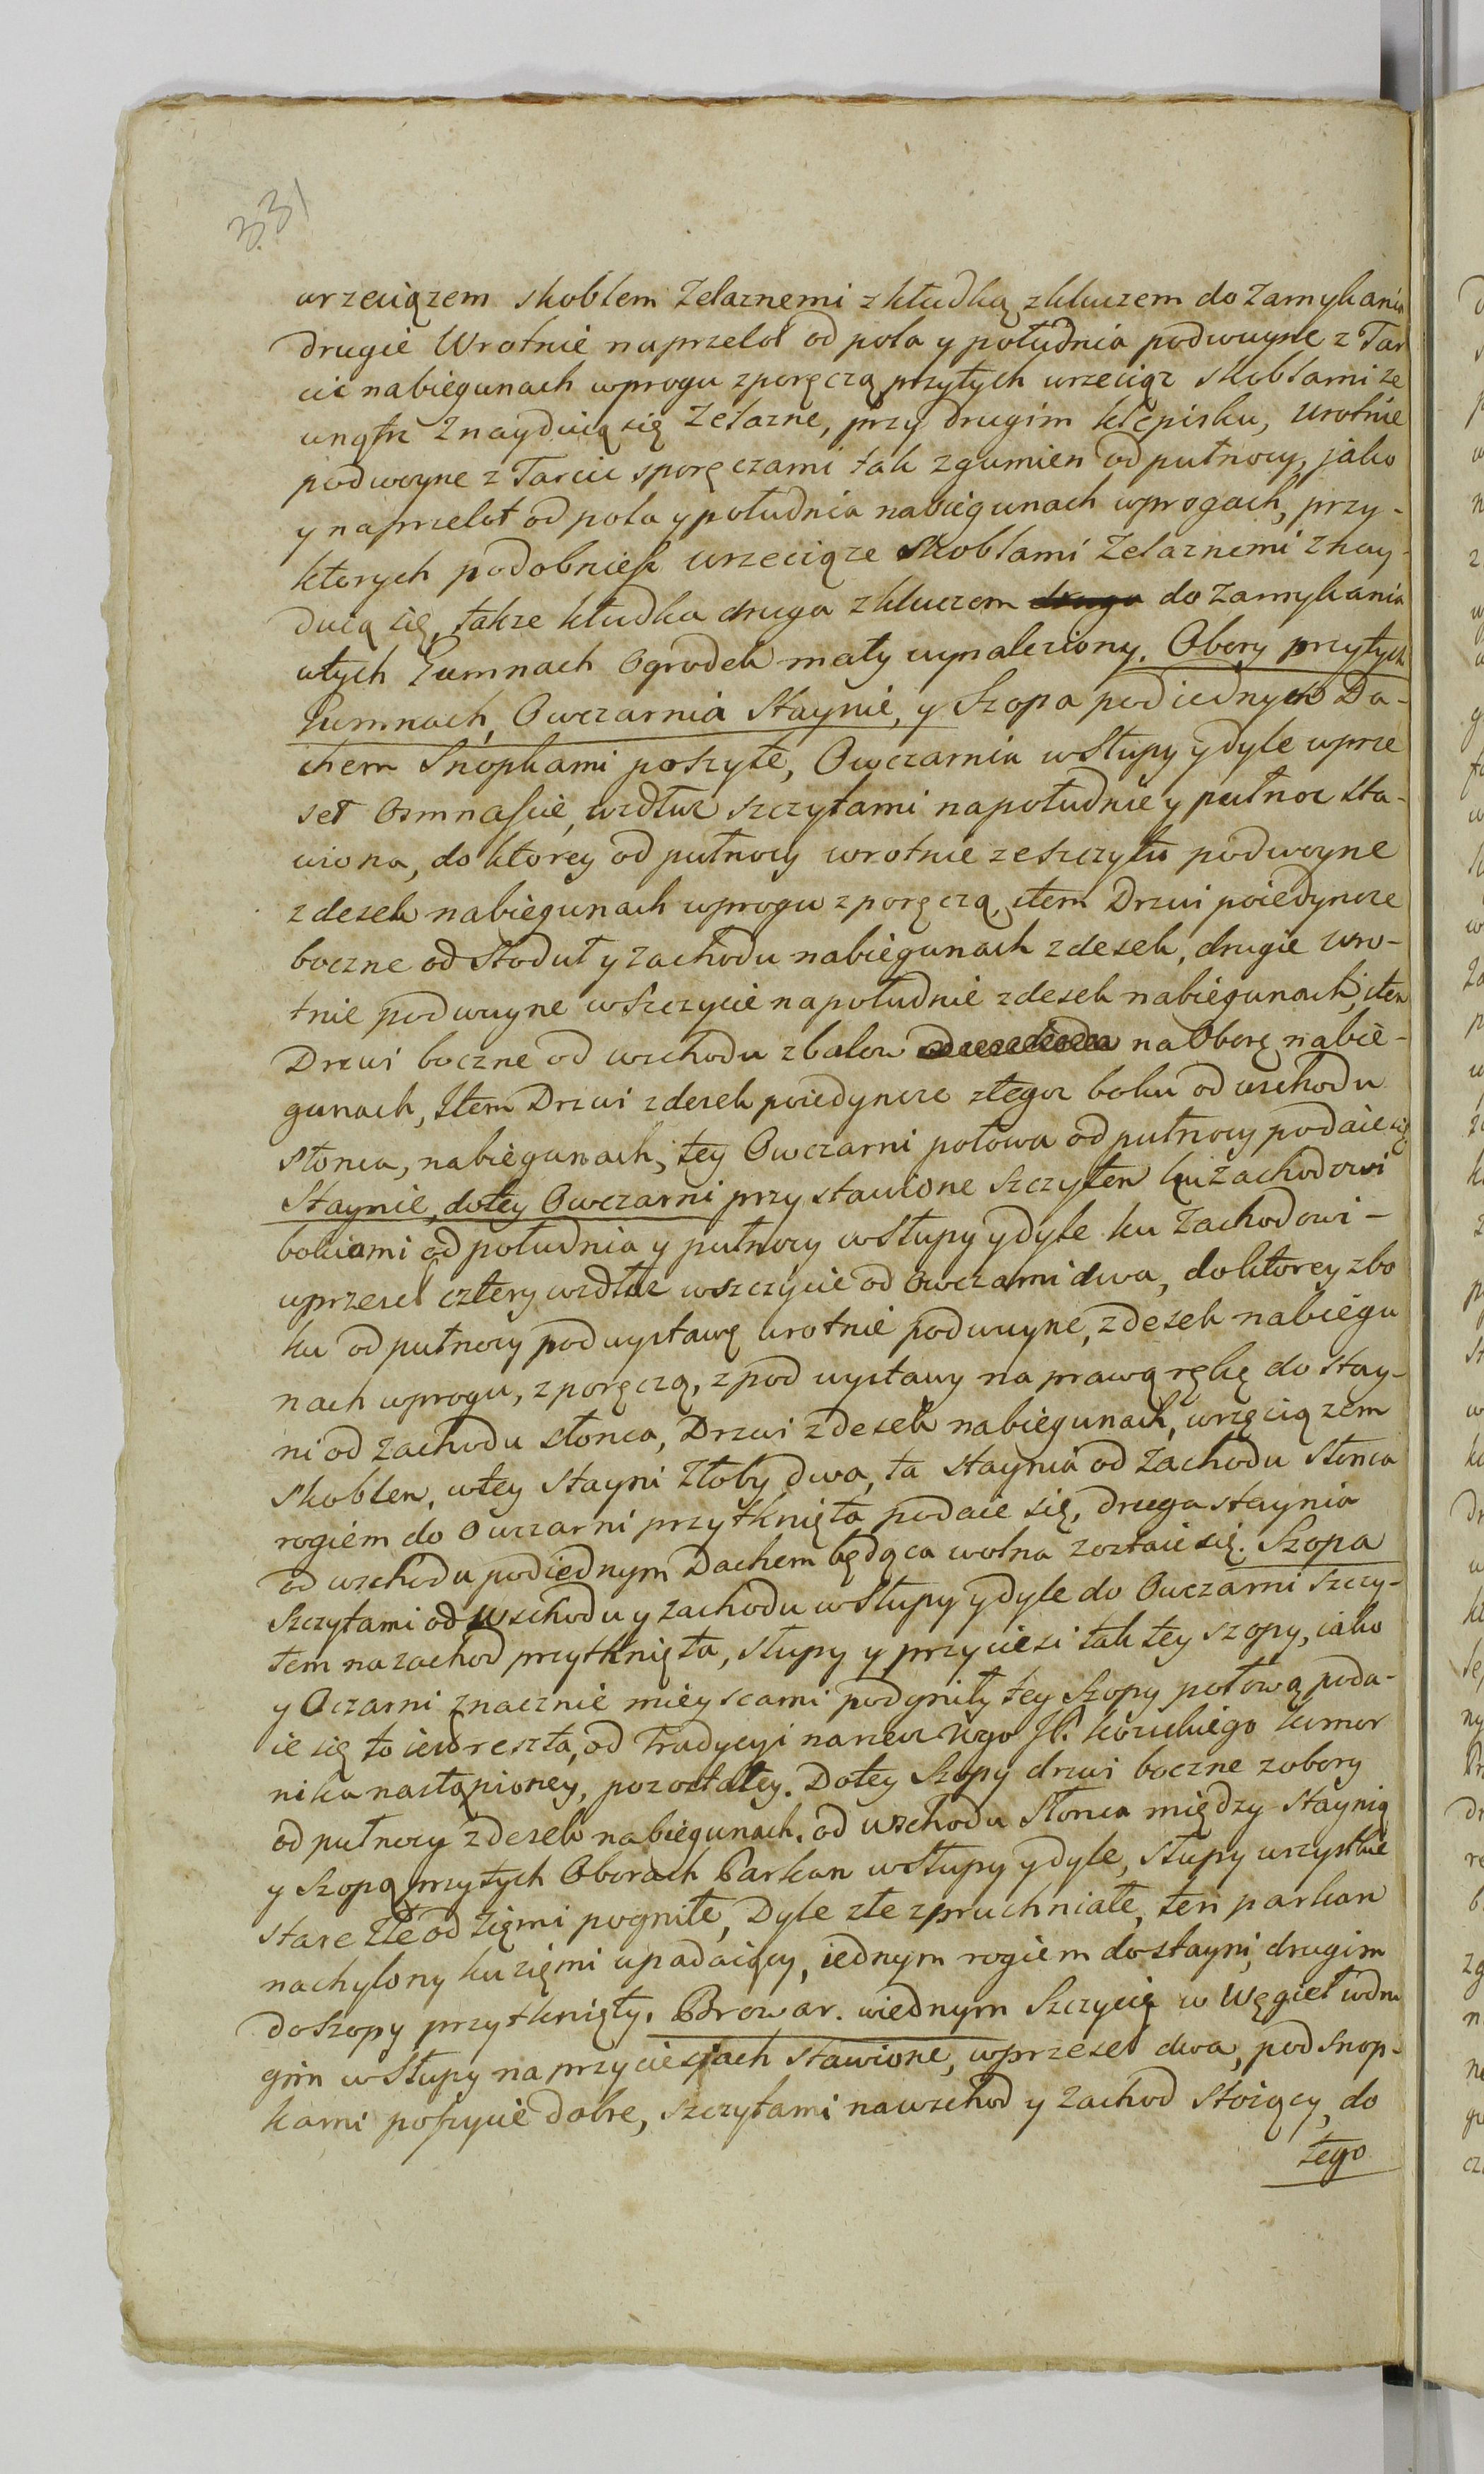 331
wrzeciązem skoblem Zelaznemi z kłudką z kluczem do Zamykania
drugie Wrotnie naprzelot od pola y południa podwuyne z Tar
cic nabiegunach wprogu zporęczą przytych wrzeciąz skoblami ze
unątrz Znayduią się Zelazne, przy drugim klepisku, wrotnie
podwoyne z Tarcic sporęczami tak zgumien od pułnocy, jako
y naprzelot od pola y południa nabiegunach wprogach, przy-
ktorych podobniesz wrzeciąze skoblami Zelaznemi znay-
duią się, takze kłudka druga z kluczem druga do Zamykania
wtych Gumnach Ogrodek mały wynaleziony. Obory przytych
Gumnach, Owczarnia Staynie, y Szopa pod iednym Da-
chem Snopkami poszyte, Owczarnia wsłupy ydyle wprze
seł Osmnaście, wzdłuz szczytami napołudnie y pułnoc sta-
wiona, do ktorey od pułnocy wrotnie zeszczytu podwoyne
zdesek nabiegunach wprogu zporęczą, item Drzwi poiedyncze
boczne od Stoduł y zachodu nabiegunach zdesek, drugie wro-
tnie podwuyne wszczycie napołudnie zdesek nabiegunach, item
Drzwi boczne od wschodu zbalow na Oborę nabie-
gunach, Item Drzwi zdesek poiedyncze ztegoz boku od wschodu
słonca, nabiegunach, tey Owczarni połowa od pułnocy podaie się
Staynie, dotey Owczarni przystawione Szczytem ku zachodowi
bokiami od południa y pułnocy wsłupy ydyle ku Zachodowi -
wprzeseł cztery wzdłuz wszczycie od Owczarni dwa, doktorey zbo
ku od pułnocy podwystawę wrotnie podwuyne, zdesek nabiegu
nach wprogu, zporęczą, zpod wystawy na prawą rękę do Stay-
ni od zachodu słonca, Drzwi zdesek nabiegunach, wrzęciązem
Skoblem, wtey Stayni Złoby dwa, ta Staynia od Zachodu Słonca
rogiem do Owczarni przytknięta podaie się, druga staynia
od wschodu podiednym Dachem będąca wolna zostaie się. Szopa
Szczytami od Wschodu y zachodu wsłupy ydyle do Owczarni szczy-
tem nazachod przytknięta, słupy y przyciesi tak tey szopy, iako
y Oczarni znacznie mieyscami podgniły tey Szopy połową poda-
ie się to iest reszta, od Tradycyi narzecz Wgo JP. Kozickiego komor
nika nastąpioney, pozostałey. Dotey Szopy drzwi boczne zobory
od pułnocy zdesek nabiegunach. od wschodu Słonca między Staynią
y Szopą przytych Oborach Parkan wsłupy ydyle, słupy wszystkie
stare złe od Ziemi pogniłe, Dyle złe zpruchniałe, ten parkan
nachylony ku ziemi upadaiący, iednym rogiem dostayni, drugim
doszopy przytknięty. Browar. wiednym Szczycię w Węgieł wdru
gim wsłupy na przyciesiach stawione, wprzeseł dwa, pod snop-
kami poszycie dobre, szczytami nawschod y zachod stoiący, do
tego